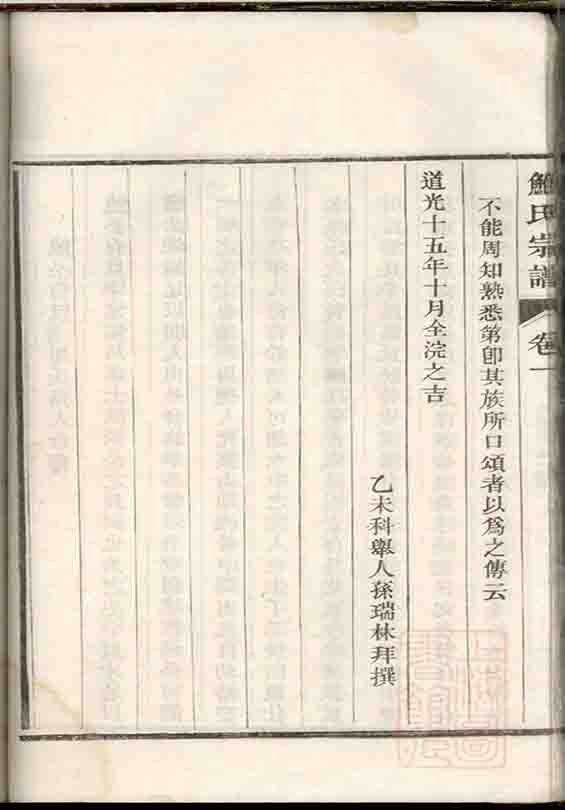 鮑氏宗譜 卷一
不能周知熟悉第卽其族所口頌者以爲之傳云
道光十五年十月全浣之吉
乙未科舉人孫瑞林拜撰